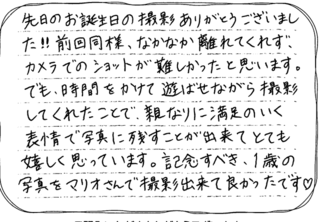 先日のお誕生日の撮影ありがとうございまし
た!!前回同様、なかなか離れてくれず、
カメラでのショットが難しかったと思います。
でも、時間をかけて遊ばせながら撮影
してくれたことで、親なりに満足のいく
表情で写真に残すことが出来てとても
嬉しく思っています。記念すべき、1歳の
写真をマリオさんで撮影出来て良かったです♡